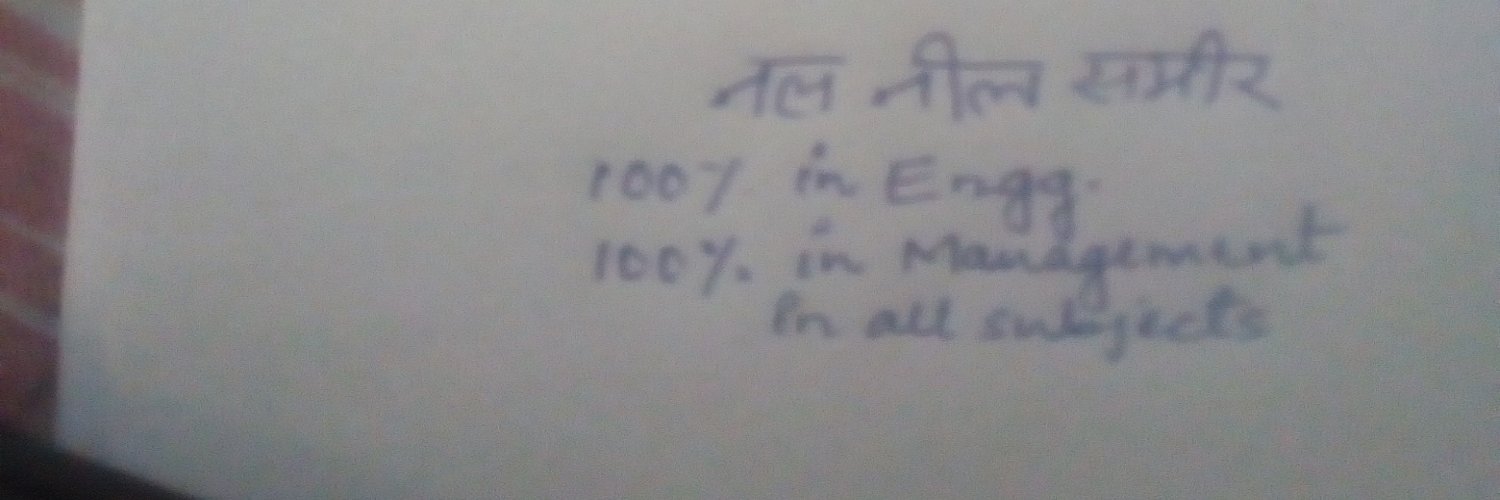 नल नील समीर
100% in Engg.
100%. in Management
In all subjects